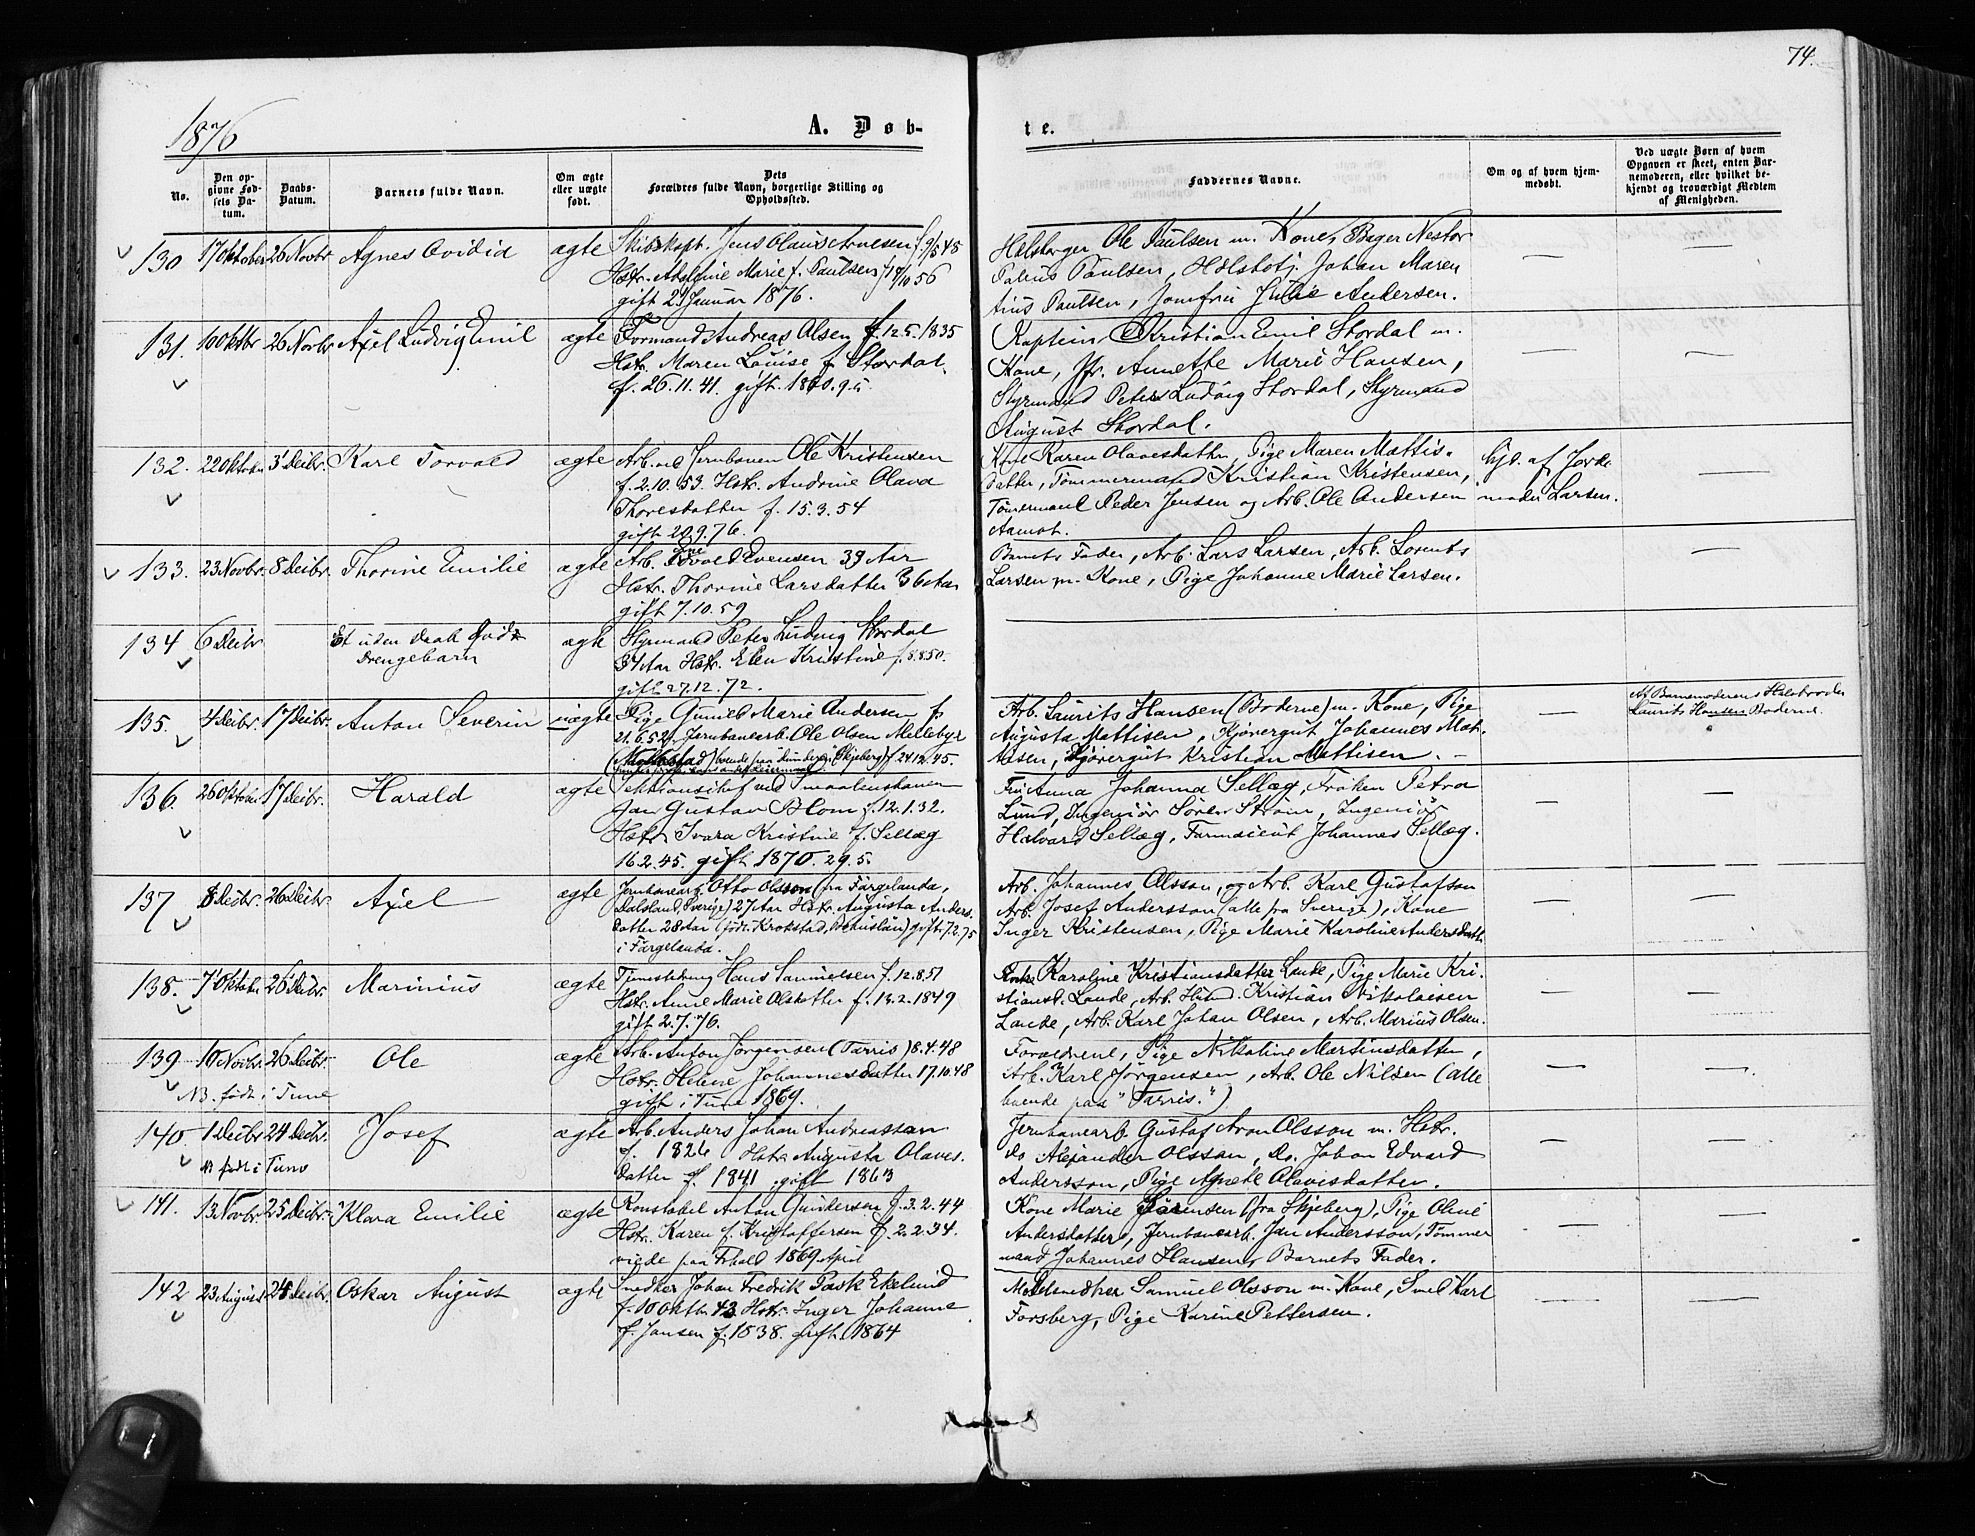 74.
1876
A. Døb-
te.
No.
Den op-
givne Fød-
sels Da-
tum.
Daabs-
Datum.
Barnets fulde Navn.
Om ægte
eller uægte
født.
Dets
Forældres fulde Navn, borgerlige Stilling og
Opholdssted.
Faddernes Navne.
Om og af hvem hjem-
medøbt.
Ved uægte Børn af hvem
Opgaven er skeet, enten Bar-
nemoderen, eller hvilket be-
kjendt og troværdigt Medlem
af Menigheden.
130 17 Oktober 26 Novbr Agnes Ovidia ægte Skibskapt. Jens Olaus Arnesen f. 9/5 48
Hstr. Adolfine Marie f. Paulsen f 14/10 56
gift 2 Januar 1876.
Ole Paulsen m. Kone, Bager Nestor
Paulsen, Johan Maren
tius Paulsen, Jomfru Julie Andersen.
131. 10 Oktbr 26 Novbr Axel Ludvig Emil ægte Formand Andreas Olsen f. 12.5.1835
Hstr. Maren Louise f. Stordal.
f. 26.11.41. gift. 1860.9.5.
Kaptein Kristian Emil Stordal m.
Kone, Jfr. Annette Marie Hansen,
Styrmand Peter Ludvig Stordal, Styrmand
August Stordal.
132. 22 Oktober 3' Decbr. Karl Torvald ægte Arb. ved Jernbanen Ole Kristensen
f. 2.10.53. Hstr. Andrine Olava
Thoresdatter f. 15.3.54
gift 20.9.76.
Kone Karen Olavesdatter, Pige Maren Mattis-
datter, Tømmermand Kristian Kristensen,
Tømermand Peder Jensen og Arb. Ole Andersen
Aamot.
hjd. af Jorde
moder Larsen.
133. 23 Novbr. 8 Decbr. Thorine Emilie ægte Arb. Evensen 39 Aar
Hstr. Thorine Larsdatter 36 Aar
gift 7.10.59
Barnets Fader, Arb. Lars Larsen, Arb. Lorents
Larsen m. Kone, Pige Johanne Marie Larsen.
134 6 Decbr Et uden Daab
Drengebarn ægte Styrmand Peter Ludvig Stordal
34 Aar Hstr. Elen Kristine f. 8.8.50.
gift 27.12.72.
135. 4 Decbr. 17 Decbr. Anton Severin uægte Pige Gunild Marie Andersen f.
21.6.52. Jernbanearb. Ole Olsen Mellebye
Skjeberg) f. 24.12.45.
Arb. Laurits Hansen (Boderne) m. Kone, Pige
Augusta Mattisen, Kjøregut Johannes Mat-
tisen, Kjøregut Kristian Mattisen.
Af Barnemoderens Halvbroder
Laurits Hansen Boderne.
136. 26 Oktober 17 Decbr. Harald ægte Sektionschef ved Smaalensbanen
Jan Gustav Blom f. 12.1.32.
Hstr. Ivara Kristine f. Sellæg
16.2.45. gift 1870. 29.5.
Fru Anna Johanna Sellæg, Frøken Petra
Lund, Ingeniør Søren Strøm, Ingeniør
Halvard Sellæg, Farmaceut Johannes Sellæg.
137 8 Decbr. 26 Decbr. Axel ægte Jernbanearb. Otto Olsson (fra Färgelanda,
Dalsland, Sverige) 27 Aar Hstr. Augusta Anders-
datter 28 Aar (født Krokstad, Bohuslän) gift 7.2.75
i Färgelanda.
Arb. Johannes Olsson, og Arb. Karl Gustafson
Arb. Josef Andersson (alle fra Sverige), Kone
Inger Kristensen, Pige Marie Karoline Andersdatter
138. 7' Oktober 26' Decbr. Marinius ægte Tjenestedreng Hans Samuelsen f. 12.8.51
Hstr. Anne Marie Olsdatter f. 13.2.1849
gift 2.7.76.
Enke Karoline Kristiansdatter Lande, Pige Marie Kri-
stiansd. Lande, Arb. Kristian Nikolaisen
Lande, Arb. Karl Johan Olsen, Arb. Marius Olsen.
139 10 Novbr. 26 Decbr. Ole ægte Arb. Anton Jørgensen (Tarris) 8.4.48
NB. født i Tune Hstr. Helene Johannesdatter 17.10.48
gift i Tune 1869.
Forældrene, Pige Nikoline Martinsdatter,
Arb. Karl Jørgensen, Arb. Ole Nilsen (alle
boende paa "Tarris.")
140. 1 Decbr 24 Decbr. Josef ægte Arb. Anders Johan Andreassen
NB født i Tune f. 1826 Hstr Augusta Olaves-
datter f. 1841 gift 1863
Jernbanearb. Gustaf Aron Olsson m. Hstr.
do Alexander Olsson, Do. Johan Edvard
Andersson, Pige Agnete Olavesdatter.
141. 13 Novbr. 25 Decbr. Klara Emilie ægte Konstabel Anton Gundersen f. 3.2.44
Hstr. Karen f. Kristoffersen f. 2.2.34.
viede paa Frhald 1869 April
Kone Marie Sørensen (fra Skjeberg), Pige Oline
Andersdatter, Jernbanearb. Jan Andersson, Tømmer
mand Johannes Hansen, Barnets Fader.
142 23 August 24 Decbr. Oskar August ægte Snedker Johan Fredrik Pask Ekelund
f. 10 Oktbr. 43. Hstr. Inger Johanne
f. Jansen f. 1838. gift 1864
Samuel Olsson m. Kone, Smed Karl
Forsberg, Pige Karine Pettersen.